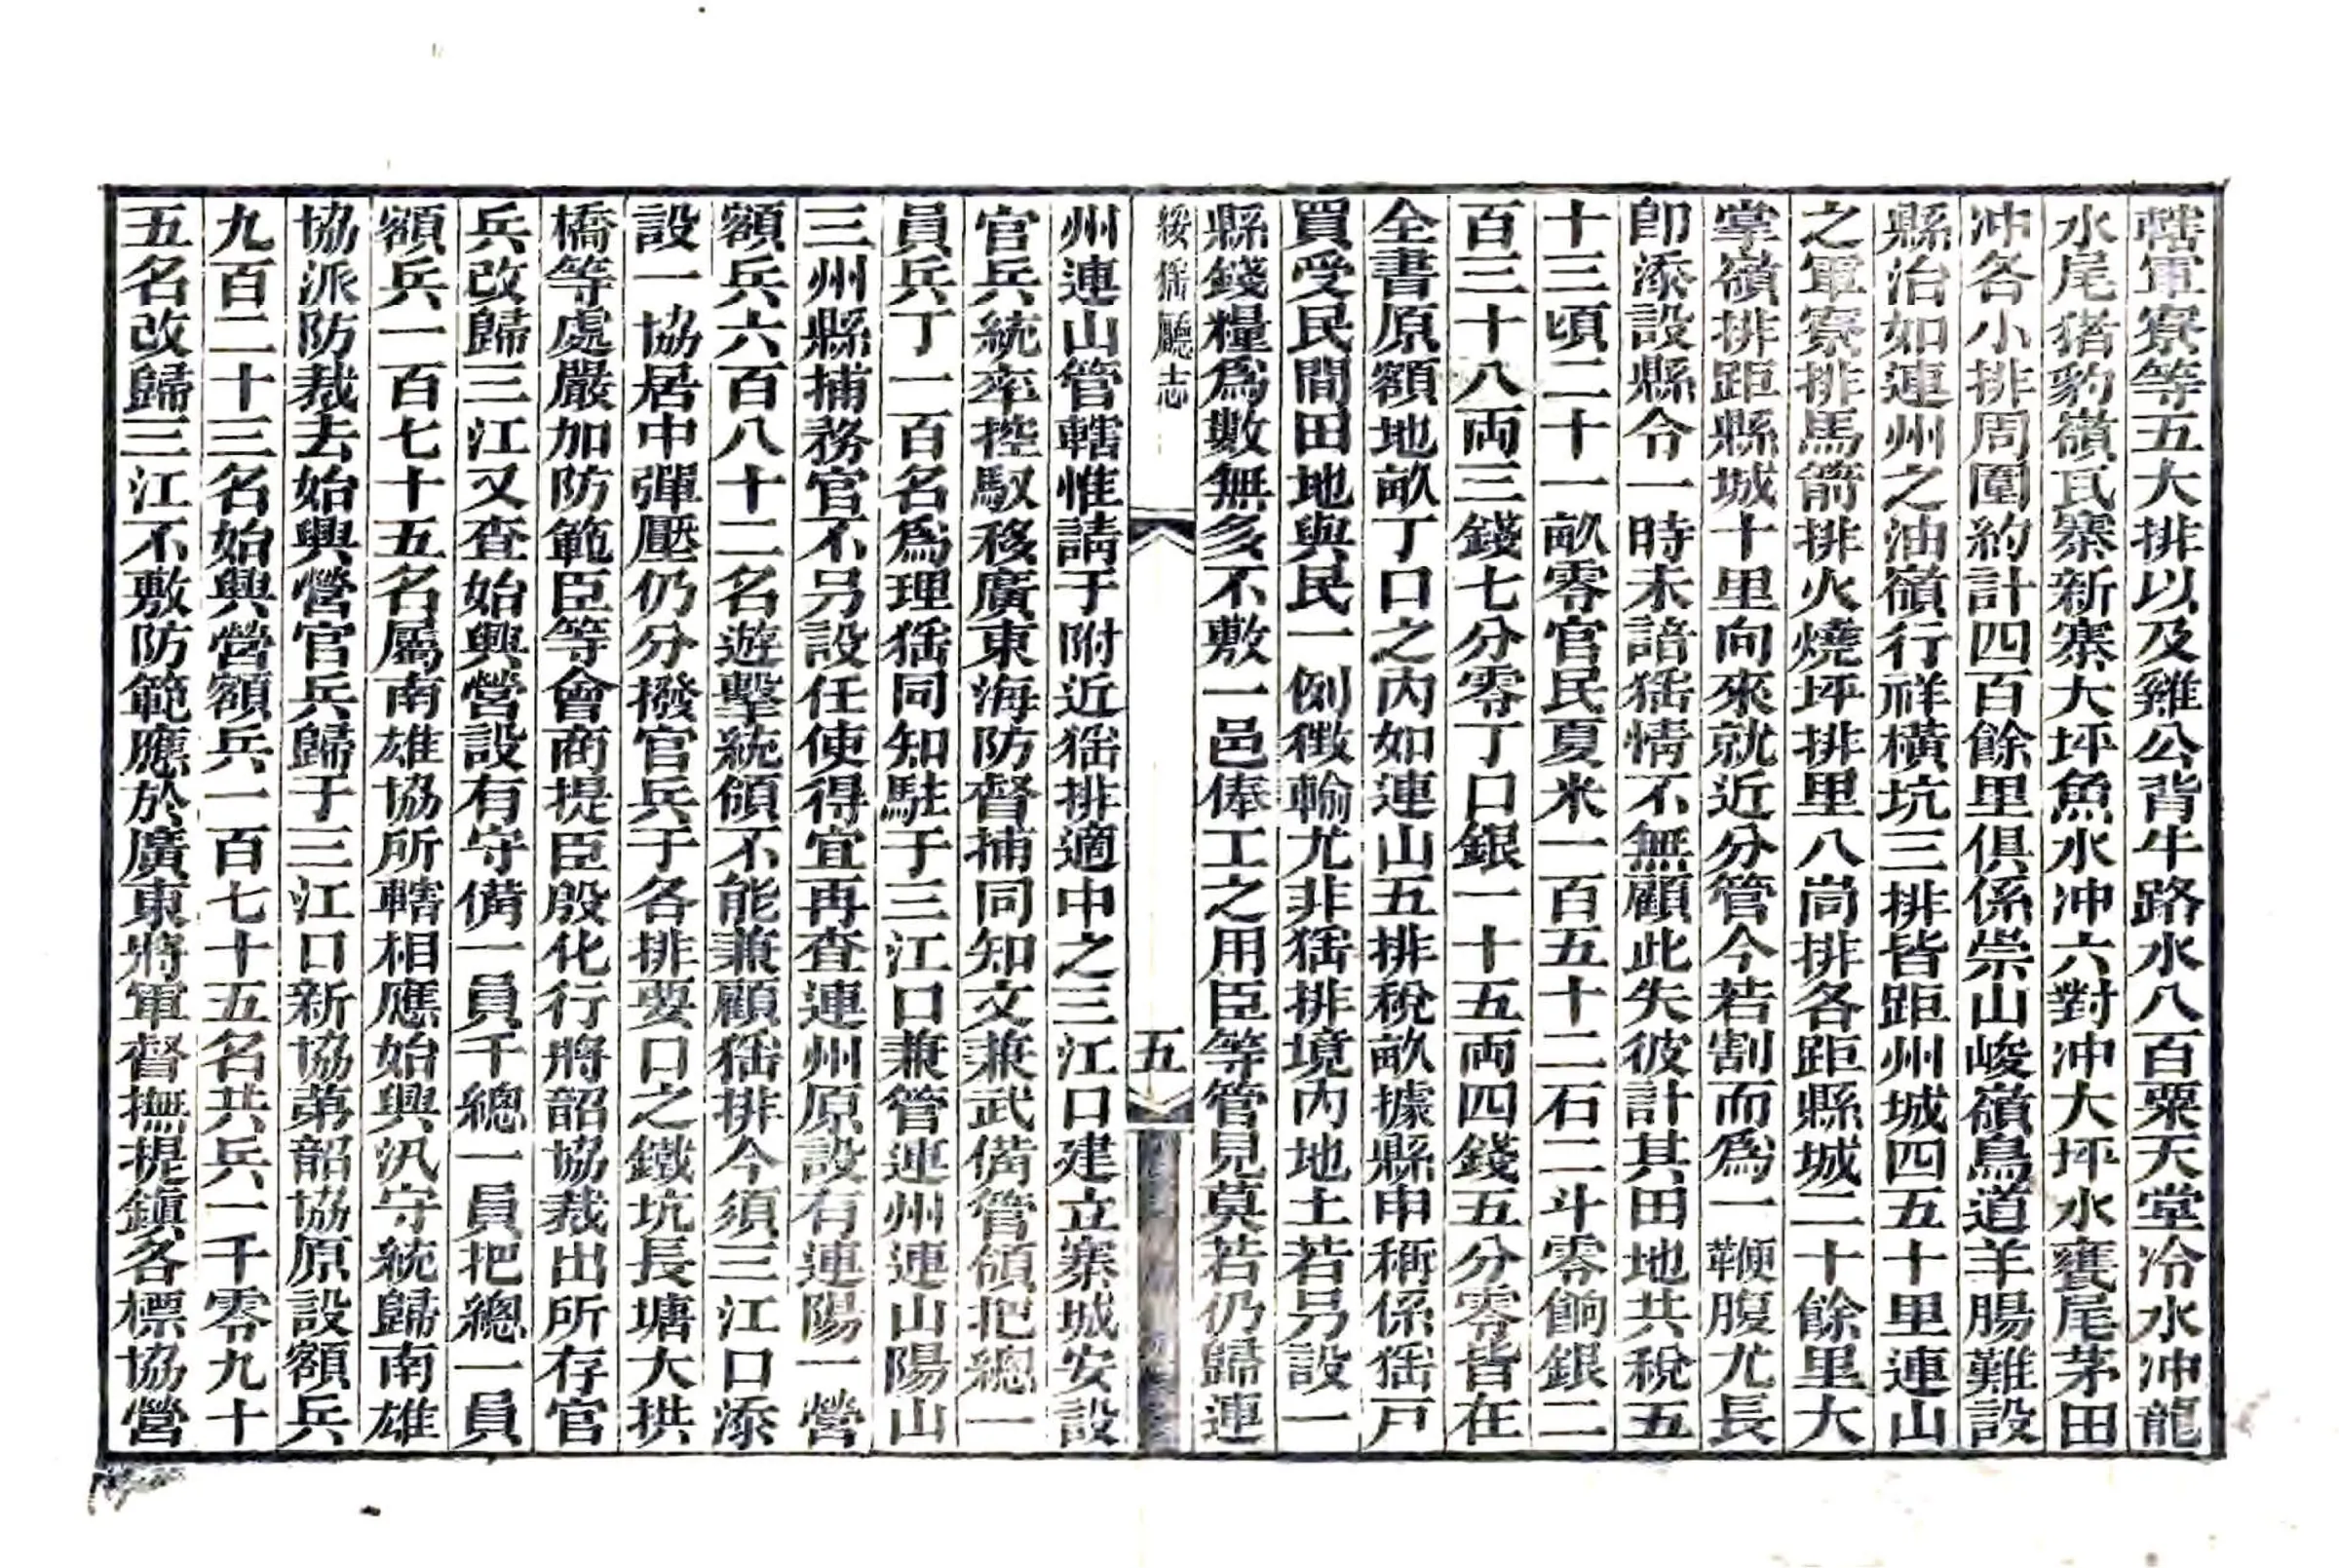 轄軍寮等五大排以及雞公背牛路水八百粟天堂冷水冲龍
水尾猪豹嶺氐寨新寨大坪魚水冲六對冲大坪水甕尾茅田
冲各小排周圍約計四百餘里俱係崇山峻嶺鳥道羊腸難設
縣治如連州之油嶺行祥橫坑三排皆距州城四五十里連山
之軍寮排馬箭排火燒坪排里八峝排各距縣城二十餘里大
掌嶺排距縣城十里向來就近分管今若割而爲一鞭腹尤長
卽添設縣令一時未諳猺情不無顧此失彼計其田地共稅五
十三頃二十一畝零官民夏米一百五十二石二斗零餉銀二
百三十八両三錢七分零丁口銀一十五両四錢五分零皆在
全書原額地畝丁口之內如連山五排稅畝據縣申稱係猺戸
買受民間田地與民一例徵輸尤非猺排境內地土若另設一
縣錢糧爲數無多不敷一邑俸工之用臣等管見莫若仍歸連
綏猺廳志
五
州連山管轄惟請于附近猺排適中之三江口建立寨城安設
官兵統率控馭移廣東海防督捕同知文兼武備管領把總一
員兵丁一百名爲理猺同知駐于三江口兼管連州連山陽山
三州縣捕務官不另設任使得宜再查連州原設有連陽一營
額兵六百八十二名遊擊統領不能兼顧猺排今須三江口添
設一協居中彈壓仍分撥官兵于各排要口之鐵坑長塘大拱
橋等處嚴加防範臣等會商提臣殷化行將韶協裁出所存官
兵改歸三江又查始興營設有守備一員千總一員把總一員
額兵一百七十五名屬南雄協所轄相應始興汛守統歸南雄
協派防裁去始興營官兵歸于三江口新協第韶協原設額兵
九百二十三名始興營額兵一百七十五名共兵一千零九十
五名改歸三江不敷防範應於廣東將軍督撫提鎮各標協營